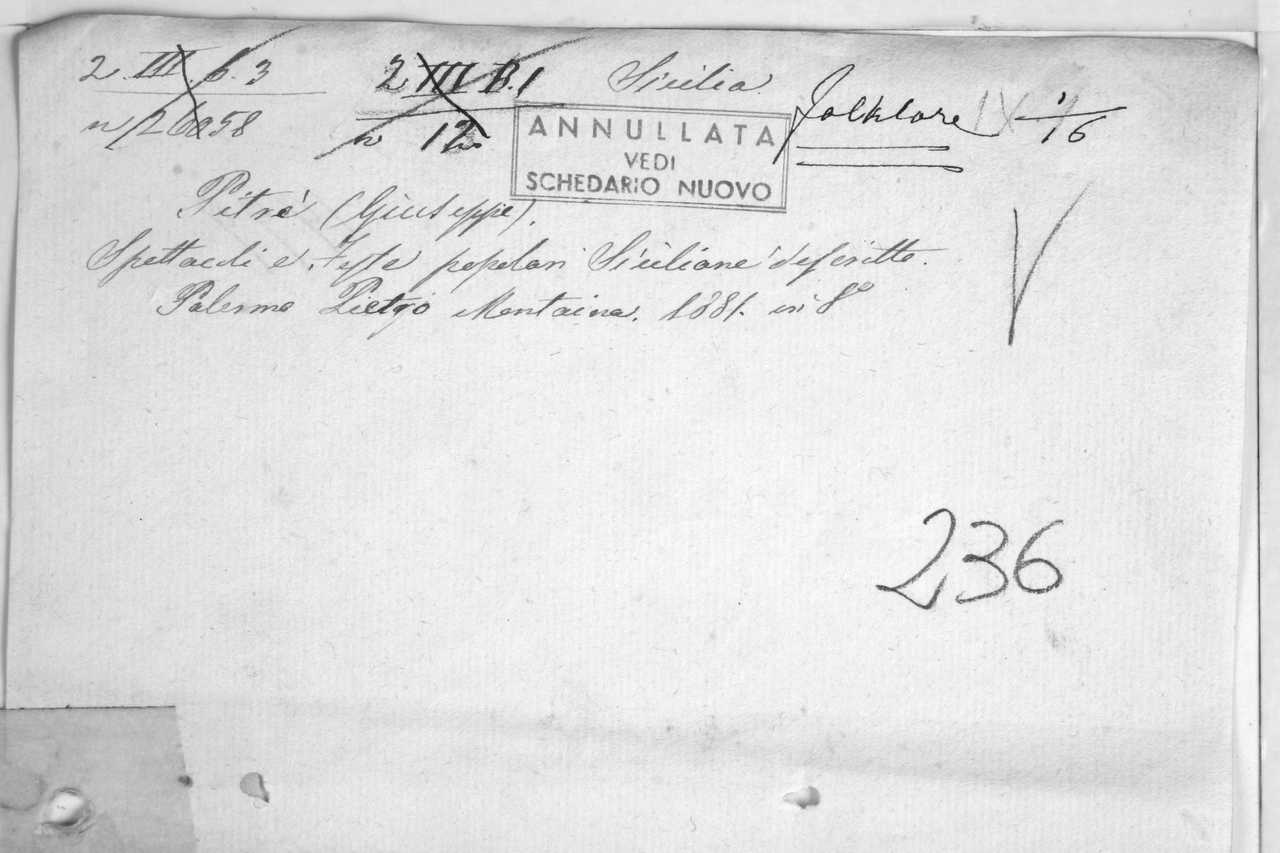 2 III. 6. 3 2 III B. 1 Sicilia Folklore IX 1/16
n 26058 n 12
ANNULLATA
VEDI
SCHEDARIO NUOVO
Pitrè (Giuseppe).
Spettacoli e feste popolari Siciliane descritte.
Palermo Pietro Montaina. 1881. in 8°
236